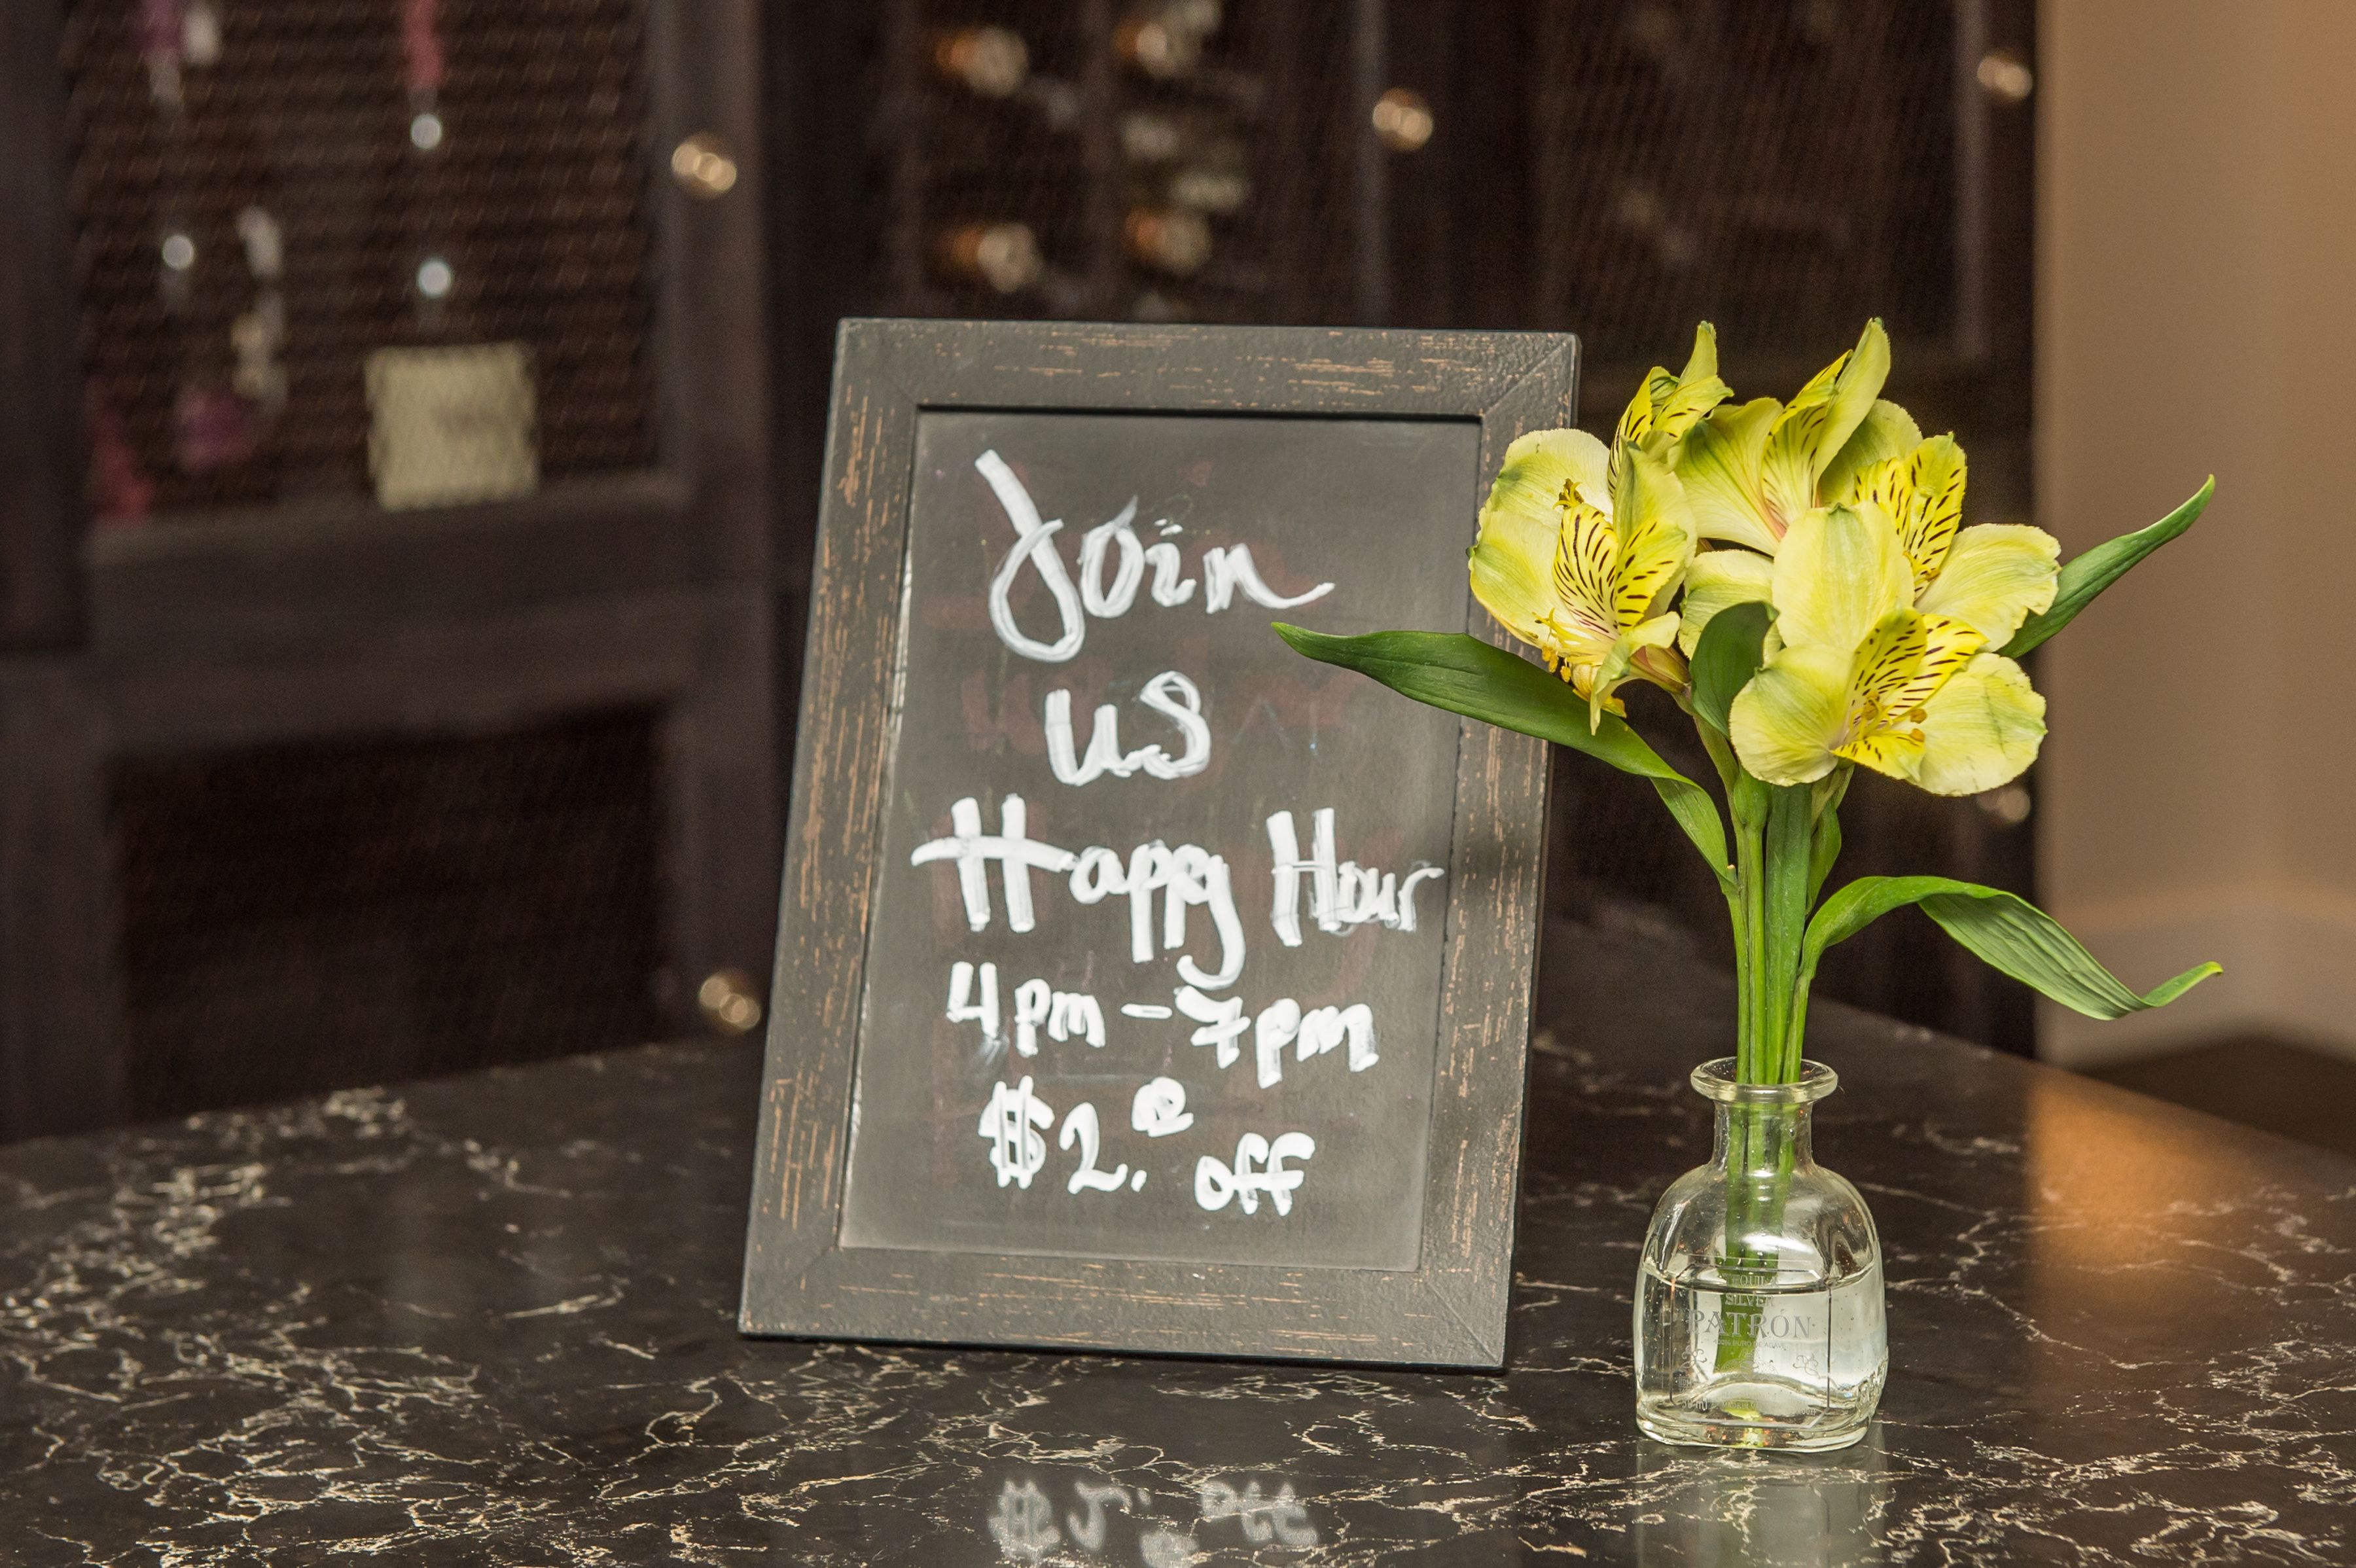 Join
us
Happy Hour
4pm - 7pm
$2.00 off
SILVER
PATRÓN